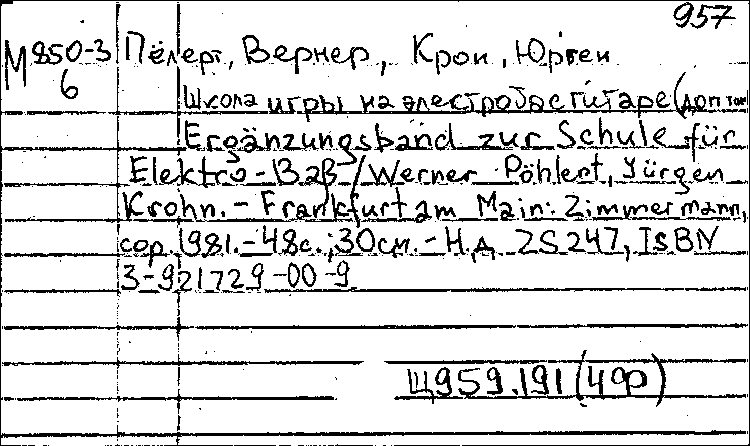 957
М850-3 Пёлерт, Вернер, Крон, Юрген
6
Школа игры на электробасгитаре (доп. том)
Ergänzungsband zur Schule für
Elektro-Baβ / Werner Pöhlert, Jürgen
Krohn. - Frankfurt am Main: Zimmermann,
cop. 1981. - 48с.; 30см. - Н.д. ZS247, ISBN
3-921729-00-9
Щ959.191(4Ф)